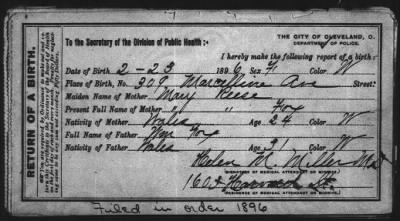 RETURN OF A BIRTH.
THE CITY OF CLEVELAND, O.
DEPARTMENT OF POLICE.
To the Secretary of the Division of Public Health:
I hereby make the following report of a birth:
Date of Birth, 2-23 1896 Sex F. Color W
Place of Birth, No. 309 Marcelline Ave Street:
Maiden Name of Mother Mary Reese
Present Full Name of Mother " " Fox
Nativity of Mother Wales Age 24 Color W
Full Name of Father Wm Fox
Nativity of Father Wales Age 31 Color W
Helen M. Miller M.D.
(SIGNATURE OF MEDICAL ATTENDANT OR MIDWIFE.)
1603
(RESIDENCE OF MEDICAL ATTENDANT OR MIDWIFE.)
Filed in order 1896